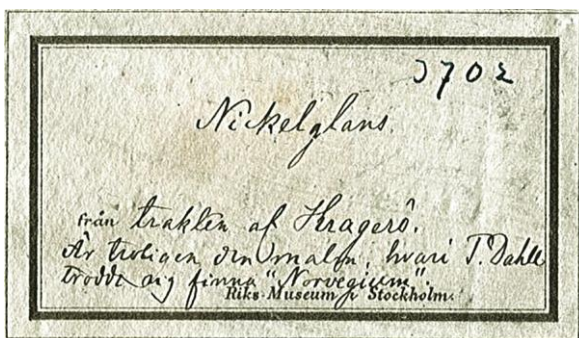 3702
Nickelglans.
från trakten af Kragerö.
Är troligen den malm, hvari T. Dahll
trodde sig finna "Norvegium".
Riks-Museum, Stockholm.